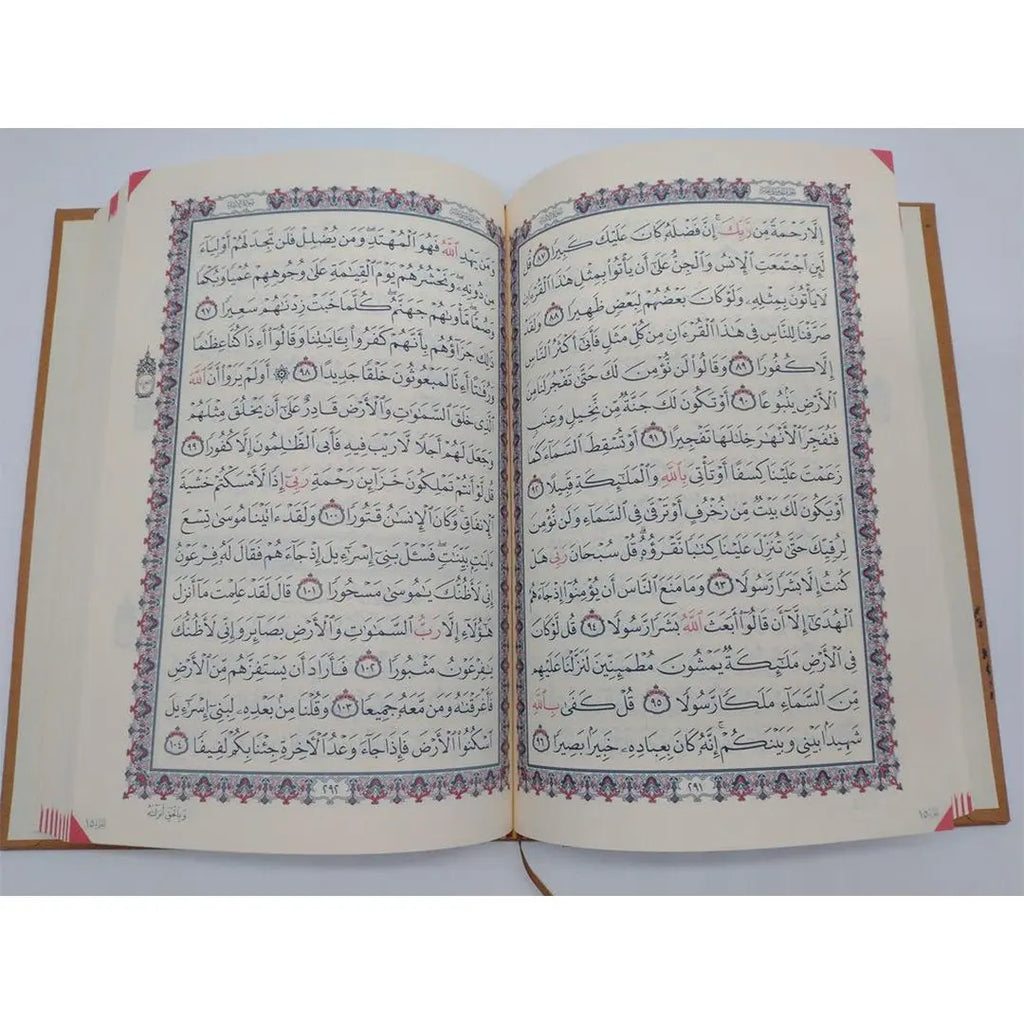 إِلَّا رَحْمَةً مِّن رَّبِّكَ ۚ إِنَّ فَضْلَهُۥ كَانَ عَلَيْكَ كَبِيرًا ٨٧ قُل
لَّئِنِ ٱجْتَمَعَتِ ٱلْإِنسُ وَٱلْجِنُّ عَلَىٰٓ أَن يَأْتُوا۟ بِمِثْلِ هَٰذَا ٱلْقُرْءَانِ
لَا يَأْتُونَ بِمِثْلِهِۦ وَلَوْ كَانَ بَعْضُهُمْ لِبَعْضٍ ظَهِيرًا ٨٨ وَلَقَدْ
صَرَّفْنَا لِلنَّاسِ فِى هَٰذَا ٱلْقُرْءَانِ مِن كُلِّ مَثَلٍ فَأَبَىٰٓ أَكْثَرُ ٱلنَّاسِ
إِلَّا كُفُورًا ٨٩ وَقَالُوا۟ لَن نُّؤْمِنَ لَكَ حَتَّىٰ تَفْجُرَ لَنَا مِنَ
ٱلْأَرْضِ يَنۢبُوعًا ٩٠ أَوْ تَكُونَ لَكَ جَنَّةٌ مِّن نَّخِيلٍ وَعِنَبٍ
فَتُفَجِّرَ ٱلْأَنْهَٰرَ خِلَٰلَهَا تَفْجِيرًا ٩١ أَوْ تُسْقِطَ ٱلسَّمَآءَ كَمَا
زَعَمْتَ عَلَيْنَا كِسَفًا أَوْ تَأْتِىَ بِٱللَّهِ وَٱلْمَلَٰٓئِكَةِ قَبِيلًا ٩٢
أَوْ يَكُونَ لَكَ بَيْتٌ مِّن زُخْرُفٍ أَوْ تَرْقَىٰ فِى ٱلسَّمَآءِ وَلَن نُّؤْمِنَ
لِرُقِيِّكَ حَتَّىٰ تُنَزِّلَ عَلَيْنَا كِتَٰبًا نَّقْرَؤُهُۥ ۗ قُلْ سُبْحَانَ رَبِّى هَلْ
كُنتُ إِلَّا بَشَرًا رَّسُولًا ٩٣ وَمَا مَنَعَ ٱلنَّاسَ أَن يُؤْمِنُوٓا۟ إِذْ جَآءَهُمُ
ٱلْهُدَىٰٓ إِلَّآ أَن قَالُوٓا۟ أَبَعَثَ ٱللَّهُ بَشَرًا رَّسُولًا ٩٤ قُل لَّوْ كَانَ
فِى ٱلْأَرْضِ مَلَٰٓئِكَةٌ يَمْشُونَ مُطْمَئِنِّينَ لَنَزَّلْنَا عَلَيْهِم
مِّنَ ٱلسَّمَآءِ مَلَكًا رَّسُولًا ٩٥ قُلْ كَفَىٰ بِٱللَّهِ
شَهِيدًۢا بَيْنِى وَبَيْنَكُمْ ۚ إِنَّهُۥ كَانَ بِعِبَادِهِۦ خَبِيرًۢا بَصِيرًا ٩٦
٢٩١
الجزء ١٥
وَمَن يَهْدِ ٱللَّهُ فَهُوَ ٱلْمُهْتَدِ ۖ وَمَن يُضْلِلْ فَلَن تَجِدَ لَهُمْ أَوْلِيَآءَ
مِن دُونِهِۦ ۖ وَنَحْشُرُهُمْ يَوْمَ ٱلْقِيَٰمَةِ عَلَىٰ وُجُوهِهِمْ عُمْيًا وَبُكْمًا
وَصُمًّا ۖ مَّأْوَىٰهُمْ جَهَنَّمُ ۖ كُلَّمَا خَبَتْ زِدْنَٰهُمْ سَعِيرًا ٩٧
ذَٰلِكَ جَزَآؤُهُم بِأَنَّهُمْ كَفَرُوا۟ بِـَٔايَٰتِنَا وَقَالُوٓا۟ أَءِذَا كُنَّا عِظَٰمًا
وَرُفَٰتًا أَءِنَّا لَمَبْعُوثُونَ خَلْقًا جَدِيدًا ٩٨ ۞ أَوَلَمْ يَرَوْا۟ أَنَّ ٱللَّهَ
ٱلَّذِى خَلَقَ ٱلسَّمَٰوَٰتِ وَٱلْأَرْضَ قَادِرٌ عَلَىٰٓ أَن يَخْلُقَ مِثْلَهُمْ
وَجَعَلَ لَهُمْ أَجَلًا لَّا رَيْبَ فِيهِ فَأَبَى ٱلظَّٰلِمُونَ إِلَّا كُفُورًا ٩٩
قُل لَّوْ أَنتُمْ تَمْلِكُونَ خَزَآئِنَ رَحْمَةِ رَبِّىٓ إِذًا لَّأَمْسَكْتُمْ خَشْيَةَ
ٱلْإِنفَاقِ ۚ وَكَانَ ٱلْإِنسَٰنُ قَتُورًا ١٠٠ وَلَقَدْ ءَاتَيْنَا مُوسَىٰ تِسْعَ
ءَايَٰتٍۭ بَيِّنَٰتٍ ۖ فَسْـَٔلْ بَنِىٓ إِسْرَٰٓءِيلَ إِذْ جَآءَهُمْ فَقَالَ لَهُۥ فِرْعَوْنُ
إِنِّى لَأَظُنُّكَ يَٰمُوسَىٰ مَسْحُورًا ١٠١ قَالَ لَقَدْ عَلِمْتَ مَآ أَنزَلَ
هَٰٓؤُلَآءِ إِلَّا رَبُّ ٱلسَّمَٰوَٰتِ وَٱلْأَرْضِ بَصَآئِرَ وَإِنِّى لَأَظُنُّكَ
يَٰفِرْعَوْنُ مَثْبُورًا ١٠٢ فَأَرَادَ أَن يَسْتَفِزَّهُم مِّنَ ٱلْأَرْضِ
فَأَغْرَقْنَٰهُ وَمَن مَّعَهُۥ جَمِيعًا ١٠٣ وَقُلْنَا مِنۢ بَعْدِهِۦ لِبَنِىٓ إِسْرَٰٓءِيلَ
ٱسْكُنُوا۟ ٱلْأَرْضَ فَإِذَا جَآءَ وَعْدُ ٱلْءَاخِرَةِ جِئْنَا بِكُمْ لَفِيفًا ١٠٤
٢٩٢
وَبِالْحَقِّ أَنزَلْنَاهُ
الجزء ١٥